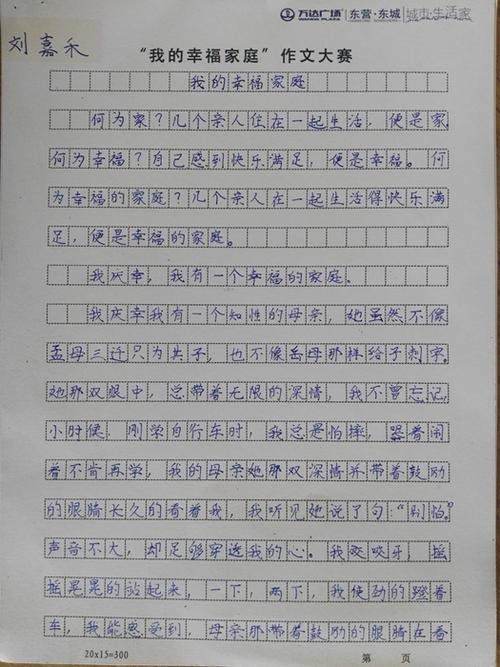 万达广场 WANDA PLAZA 东营·东城 城市·生活家
刘嘉禾
“我的幸福家庭”作文大赛
我的幸福家庭
何为家？几个亲人住在一起生活，便是家。
何为幸福？自己感到快乐满足，便是幸福。何
为幸福的家庭？几个亲人在一起生活得快乐满
足，便是幸福的家庭。
我庆幸，我有一个幸福的家庭。
我庆幸我有一个知性的母亲，她虽然不像
孟母三迁只为其子，也不像岳母那样给子刺字。
她那双眼中，总带着无限的深情，我不曾忘记，
小时候，刚学自行车时，我总是怕摔，哭着闹
着不肯再学，我的母亲她那双深情并带着鼓励
的眼睛长久的看着我，我听见她说了句：“别怕。”
声音不大，却足够穿透我的心。我咬咬牙，摇
摇晃晃的站起来，一下，两下，我使劲的蹬着
车，我能感受到，母亲那带着鼓励的眼睛在看
20x15=300
第 页